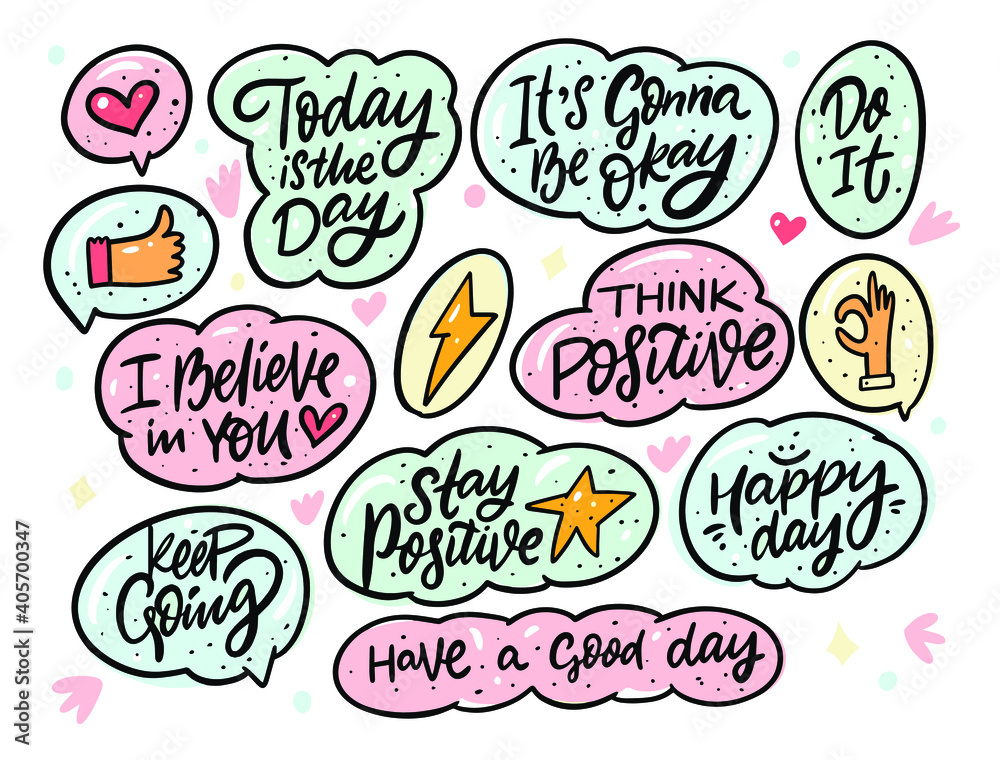 Today
is the
Day
It's Gonna
Be Okay
Do
It
I Believe
in YOU
THINK
Positive
Stay
Positive
Happy
day
Keep
Going
Have a Good day
Adobe Stock | #405700347
Adobe Stock